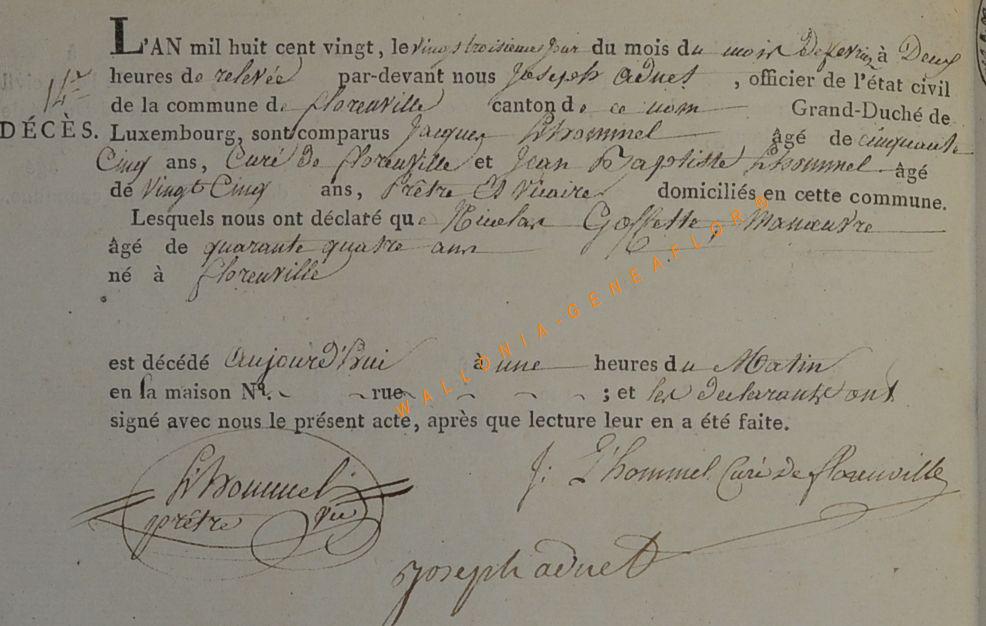 L'AN mil huit cent vingt, le vingt troisieme jour du mois du mois de fevrier à Deux
heures de relevée par-devant nous Joseph aduet, officier de l'état civil
14e
de la commune de florenville canton de ce nom Grand-Duché de
DÉCÈS. Luxembourg, sont comparus Jacques Lhommel âgé de cinquante
Cinq ans, Curé de florenville et Jean Baptiste Lhommel âgé
de Vingt Cinq ans, Prêtre Et vicaire domiciliés en cette commune.
Lesquels nous ont déclaré que Nicolas Goffette, Manœuvre
âgé de quarante quatre ans
né à florenville
est décédé aujourd'hui à une heures du Matin
en la maison Nº. rue ; et les declarants ont
signé avec nous le présent acte, après que lecture leur en a été faite.
Lhommel J: L'hommel Curé de florenville
prêtre vic
joseph aduet
WALLONIA-GENEAFLOR®